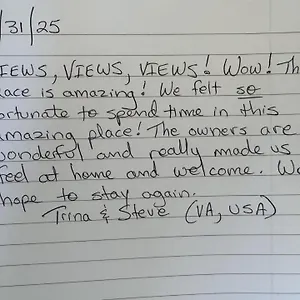 /31/25
IEWS, VIEWS, VIEWS! Wow! Th
lace is amazing! We felt so
ortunate to spend time in this
mazing place! The owners are
wonderful and really made us
feel at home and welcome. We
hope to stay again.
Trina & Steve (VA, USA)